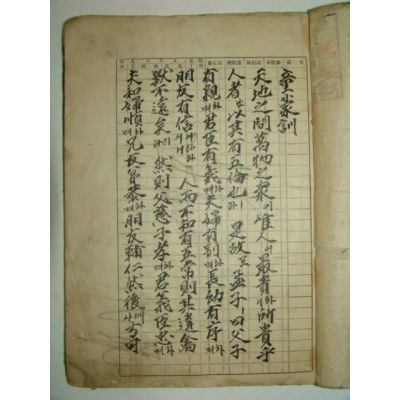 童蒙訓
天地之間萬物之衆에唯人이最貴하니所貴乎
人者는以其有五倫也라是故로孟子曰父子
有親하며君臣有義하며夫婦有別하며長幼有序하며
朋友有信이라하시니人而不知有五常則其違禽
獸不遠矣라然則父慈子孝하며君義臣忠하며
夫和婦順하며兄友弟恭하며朋友輔仁然後에사方可